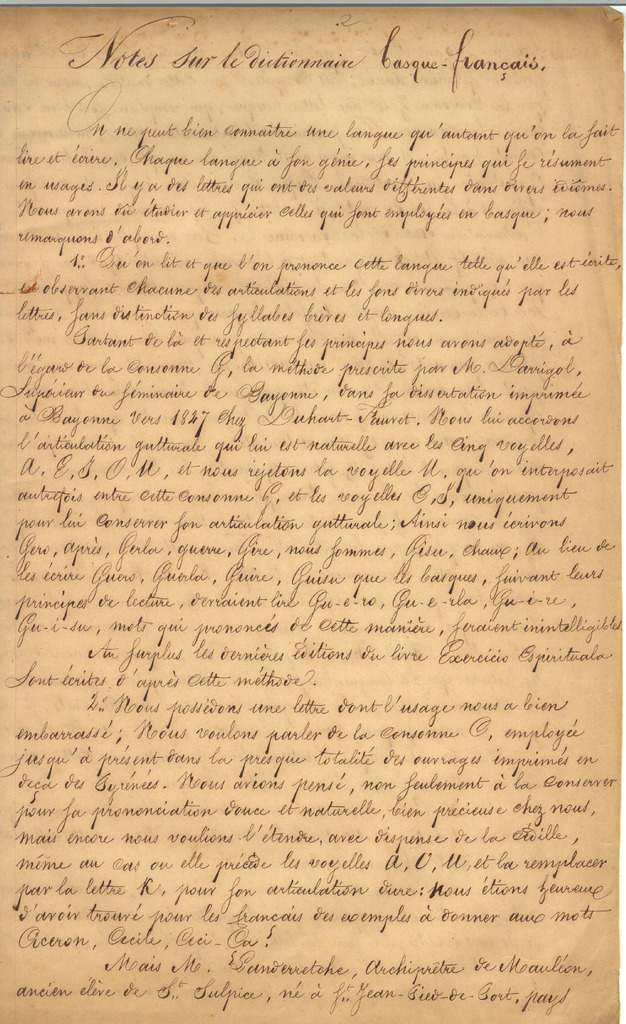 2
Notes sur le dictionnaire basque-français.
On ne peut bien connaître une langue qu'autant qu'on la sait
lire et écrire. Chaque langue à son génie, ses principes qui se résument
en usages. Il y a des lettres qui ont des valeurs différentes dans divers idiômes.
Nous avons dû étudier et apprécier celles qui sont employées en basque ; nous
remarquons d'abord.
1.º Qu'on lit et que l'on prononce cette langue telle qu'elle est écrite,
observant chacune des articulations et les sons divers indiqués par les
lettres, sans distinction des syllabes brèves et longues.
Partant de là et respectant ses principes nous avons adopté, à
l'égard de la consonne G, la méthode prescrite par M. Darrigol,
Supérieur du séminaire de Bayonne, dans sa dissertation imprimée
à Bayonne vers 1827 chez Duhart-Fauvet. Nous lui accordons
l'articulation gutturale qui lui est naturelle avec les cinq voyelles,
A, E, I, O, U, et nous rejetons la voyelle U, qu'on interposait
autrefois entre cette consonne G, et les voyelles E, I, uniquement
pour lui conserver son articulation gutturale ; Ainsi nous écrivons
Gero, après, Gerla, guerre, Gire, nous sommes, Gisu, chaux ; au lieu de
les écrire Guero, Guerla, Guire, Guisu que les basques, suivant leurs
principes de lecture, devraient lire Gu-e-ro, Gu-e-rla, Gu-i-re,
Gu-i-su, mots qui prononcés de cette manière, seraient inintelligibles.
Au surplus les dernières éditions du livre Exercicio Espirituala
sont écrites d'après cette méthode.
2.º Nous possédons une lettre dont l'usage nous a bien
embarrassé ; Nous voulons parler de la consonne C, employée
jusqu'à présent dans la presque totalité des ouvrages imprimés en
deça des Pyrénées. Nous avions pensé, non seulement à la conserver
pour sa prononciation douce et naturelle, bien précieuse chez nous,
mais encore nous voulions l'étendre, avec dispense de la cédille,
même au cas ou elle précède les voyelles A, O, U, et la remplacer
par la lettre K, pour son articulation dure : nous étions heureux
d'avoir trouvé pour les français des exemples à donner aux mots
Ciceron, Cecile, Ceci-Ça !
Mais M. Landerretche, Archiprêtre de Mauléon,
ancien élève de St. Sulpice, né à St. Jean-Pied-de-Port, pays